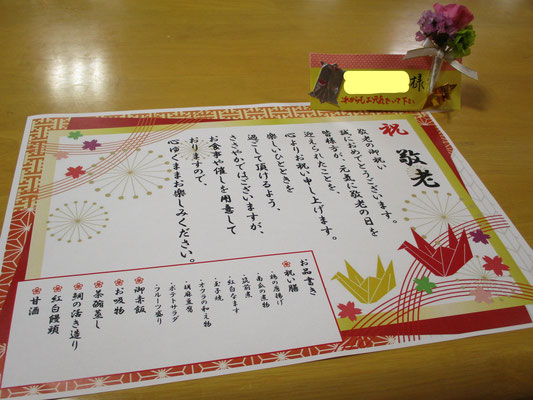 様
これからもお元気でいて下さい
祝
敬老
敬老の御祝い
誠におめでとうございます。
皆様方が、元気に敬老の日を
迎えられたことを、
心よりお祝い申し上げます。
楽しいひとときを
過ごして頂けるよう、
ささやかではございますが、
お食事や催しを用意して
おりますので、
心ゆくままお楽しみください。
お品書き
祝い膳
・鶏の唐揚げ
・南瓜の煮物
・筑前煮
・紅白なます
・玉子焼
・オクラの和え物
・胡麻豆腐
・ポテトサラダ
・フルーツ盛り
御赤飯
お吸物
茶碗蒸し
鯛の活き造り
紅白饅頭
甘酒